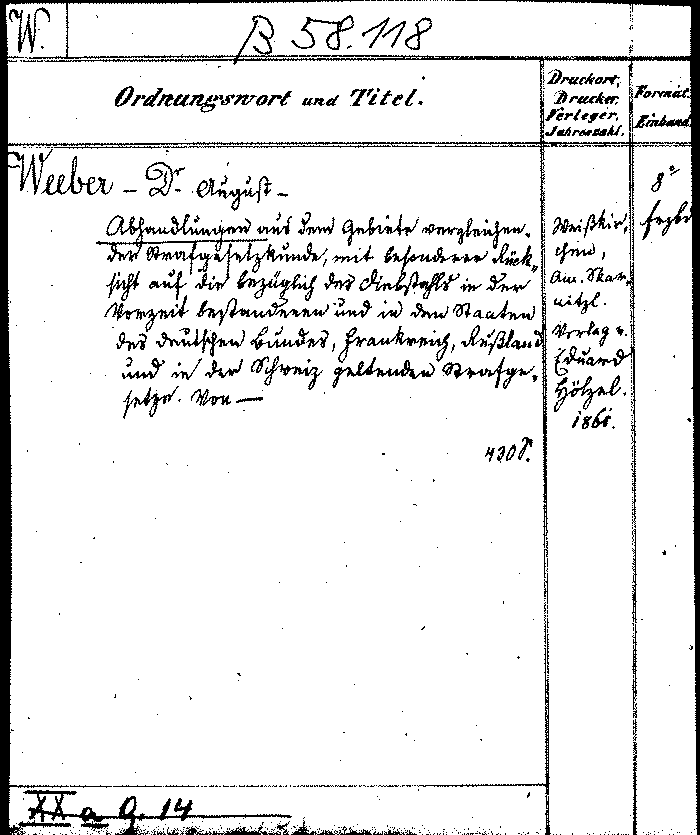 W.
B 58.118
Ordnungswort und Titel.
Druckort,
Drucker,
Verleger,
Jahreszahl.
Format.
Einband.
Weeber – Dr. August –
Abhandlungen aus dem Gebiete vergleichen-
der Strafgesetzkunde, mit besonderer Rück-
sicht auf die bezüglich des Diebstahls in der
Vorzeit bestandenen und in den Staaten
des deutschen Bundes, Frankreich, Rußland
und in der Schweiz geltenden Strafge-
setze. Von —
430 S.
Weißkir-
chen,
Ant. Skar-
nitzl.
Verlag v.
Eduard
Hölzel.
1861.
8°
XX a G. 14